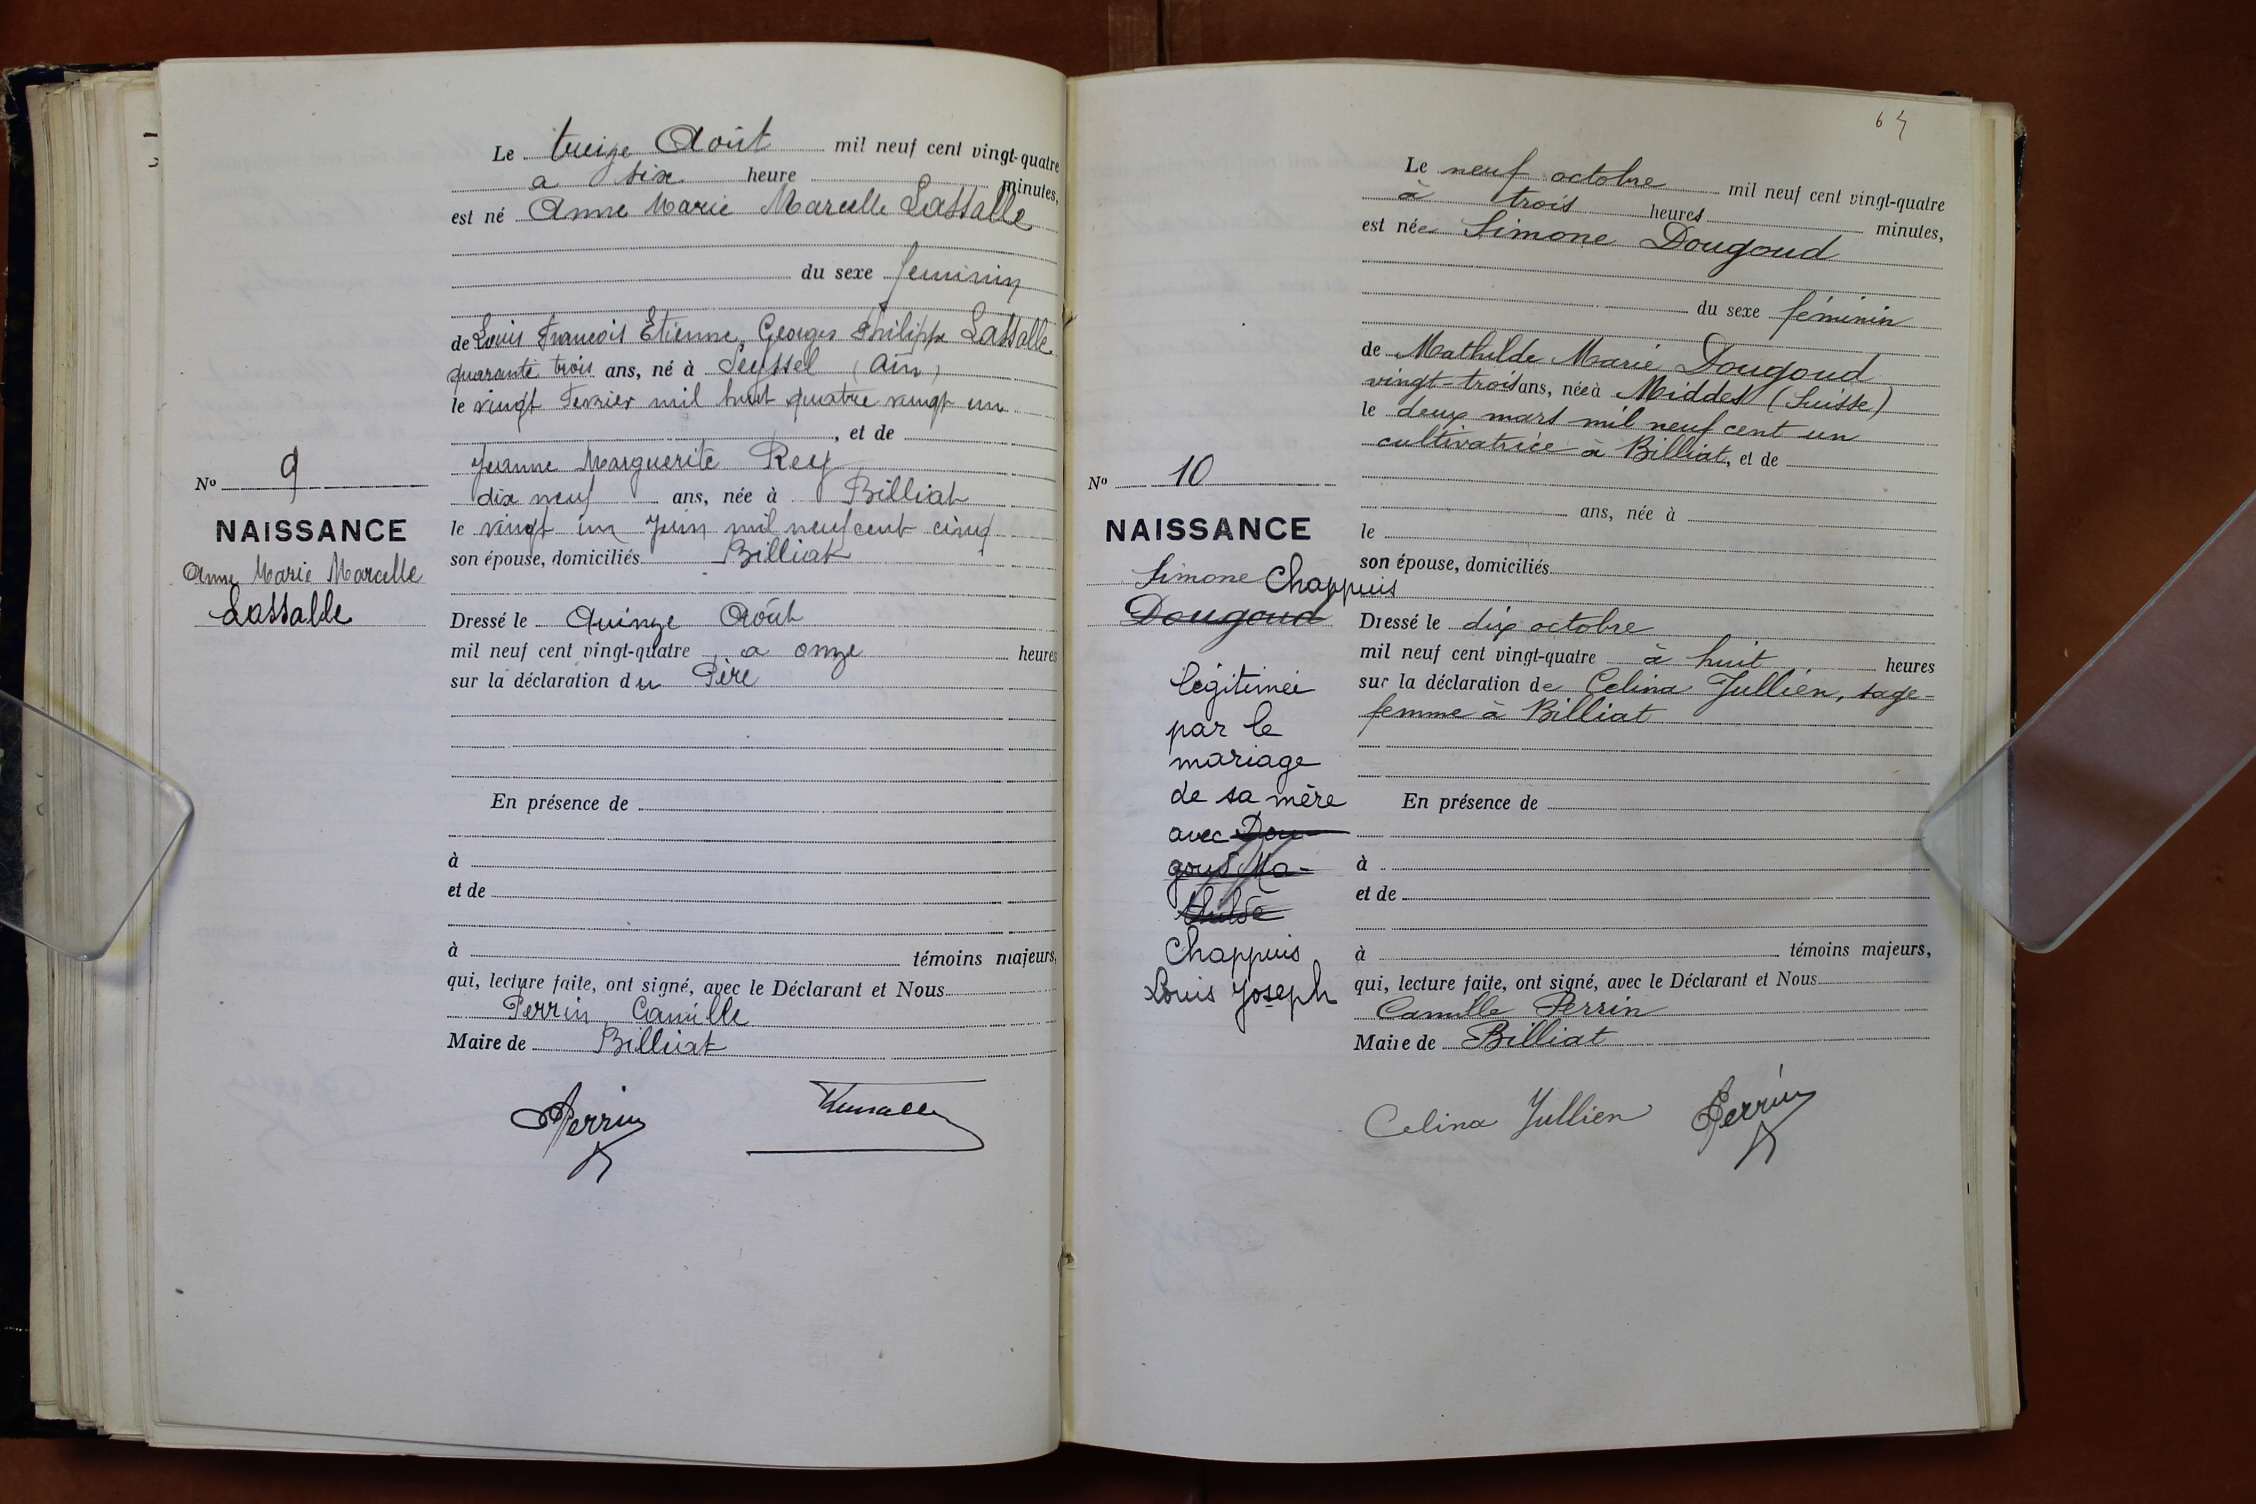 Le treize Août mil neuf cent vingt-quatre
a six heure minutes,
est né Anne Marie Marcelle Lassalle
du sexe feminin
de Louis Francois Etienne, Georges Philippe Lassalle
quarante trois ans, né à Seyssel (Ain)
le vingt Fevrier mil huit quatre vingt un
, et de
Jeanne Marguerite Rey
dix neuf ans, née à Billiat
le vingt un Juin mil neuf cent cinq
son épouse, domiciliés Billiat
No 9
NAISSANCE
Anne Marie Marcelle
Lassalle
Dressé le Quinze Août
mil neuf cent vingt-quatre a onze heures
sur la déclaration du Père
En présence de
à
et de
à témoins majeurs,
qui, lecture faite, ont signé, avec le Déclarant et Nous
Perrin Camille
Maire de Billiat
Perrin
64
Le neuf octobre mil neuf cent vingt-quatre
à trois heures minutes,
est née Simone Dougoud
du sexe féminin
de Mathilde Marie Dougoud
vingt-trois ans, née à Middes (Suisse)
le deux mars mil neuf cent un
cultivatrice à Billiat, et de
ans, née à
le
son épouse, domiciliés
No 10
NAISSANCE
Simone Chappuis
Dougoud
légitimée
par le
mariage
de sa mère
avec Dou-
goud Ma-
thilde
Chappuis
Louis Joseph
Dressé le dix octobre
mil neuf cent vingt-quatre à huit heures
sur la déclaration de Celina Jullien, sage-
femme à Billiat
En présence de
à
et de
à témoins majeurs,
qui, lecture faite, ont signé, avec le Déclarant et Nous
Camille Perrin
Maire de Billiat
Celina Jullien Perrin